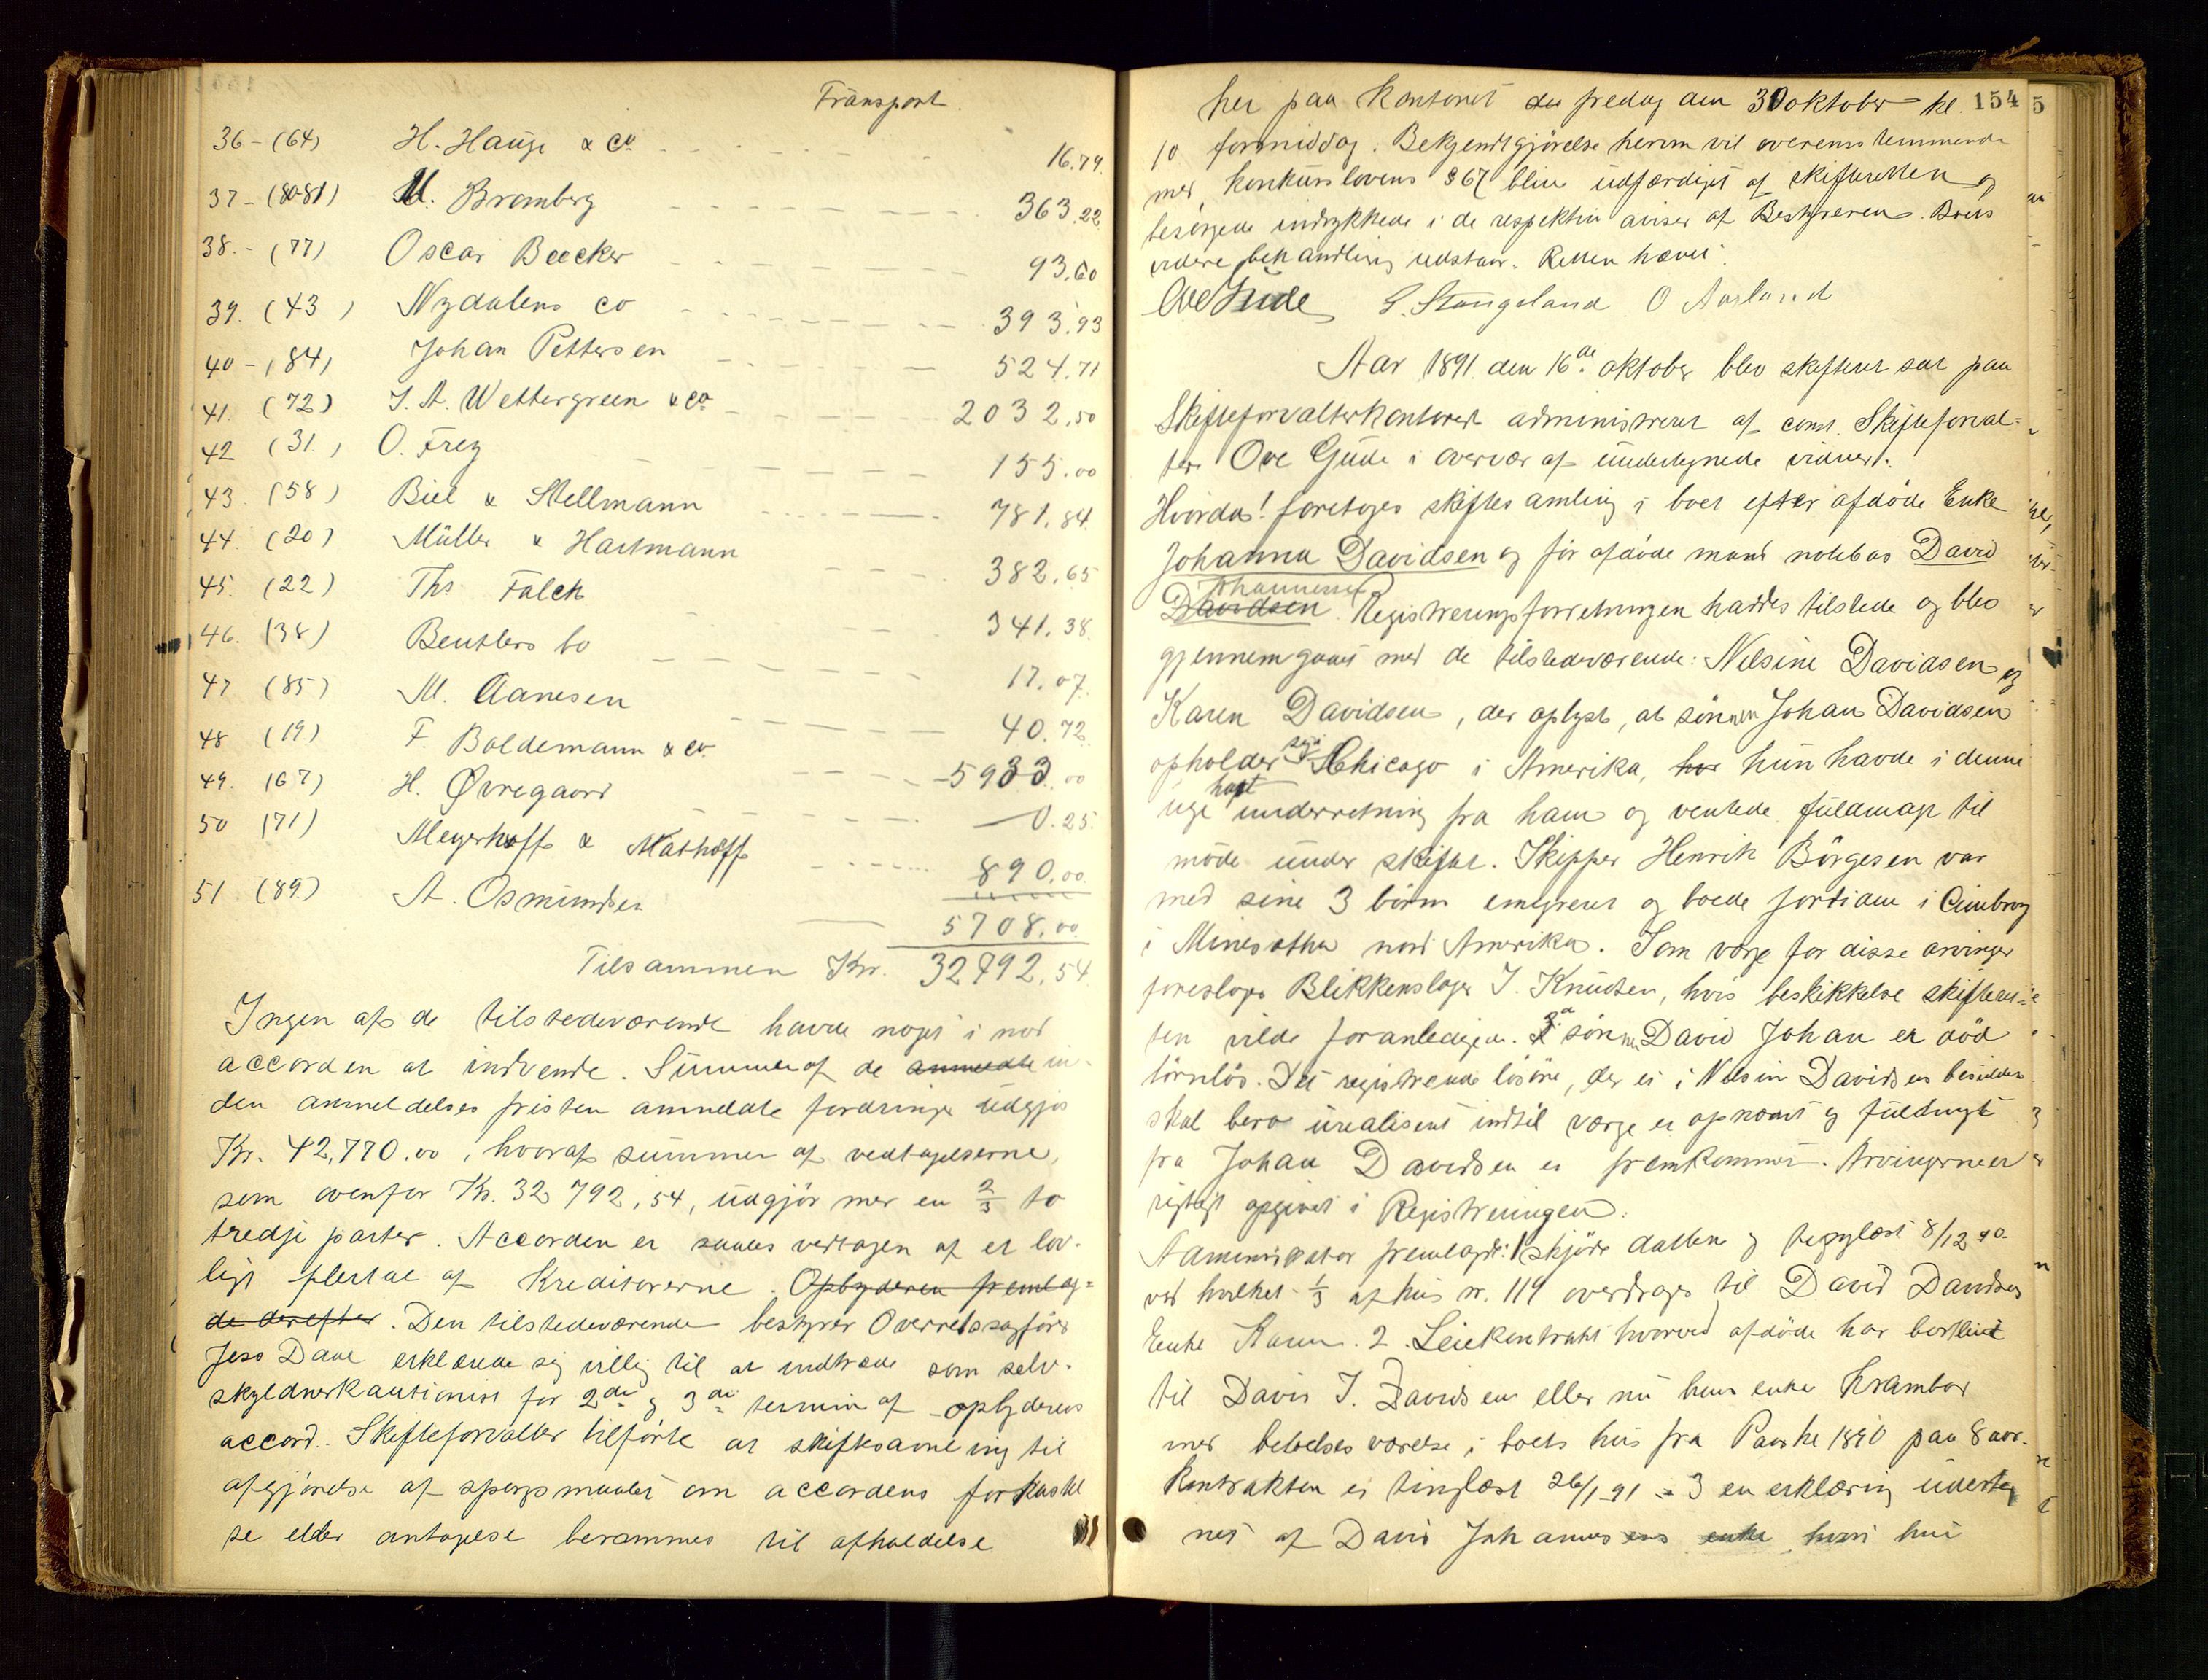 Transport.
36 - (64) H. Hauge & Co 16.79
37 - (80-81) M. Bromberg 363.22
38. - (77) Oscar Beecker 93.60
39. (43) Nydalens Co 393.93
40 - (84) Johan Pettersen 524.71
41. (72) J. A. Wettergreen & Co 2032.50
42 (31.) O. Frey 155.00
43. (58) Biel & Stellmann 781.84
44. (20) Müller & Hartmann 382.65
45. (22) Ths Falck 341.38
46. (38) Beutlers bo 17.07
47 (85) M. Aanesen 40.72
48 (19) F. Boldemann & Co 5933.00
49. (67) H. Øvregaard 0.25
50 (71) Meyerhoff & Mathoff 890.00
51 (89.) A. Osmundsen 5708.00
Tilsammen Kr. 32792.54
Ingen af de tilstedeværende havde noget i mod
accorden at indvende. Summen af de anmeldte in-
den anmeldelses fristen anmeldte fordringer udgjør
Kr. 42,770.00, hvoraf summen af vedtagelserne,
som ovenfor Kr. 32 792,54, udgjör mer en 2/3 to
tredje parter. Accorden er saales vedtagen af et lov-
ligt flertal af Kreditorerne. Opbyderen fremlag-
de derefter. Den tilstedeværende bestyrer Overretssagförer
Jess Dahl erklærede sig villig til at indtræde som selv-
skyldnerkautionist for 2de og 3de termin af opbyderens
accord. Skifteforvalter tilførte at skiftesamling til
afgjørelse af spørgsmaalet om accordens forkastel
se eller antagelse berammes til afholdelse
her paa kontoret den fredag den 30 oktober kl. 154 5
10 formiddag. Bekjendtgjörelse herom vil overensstemmende
med konkurslovens § 67 blive udfærdiget af skifteretten og
besørgede indrykkede i de respektive aviser af Bestyreren. Boets
videre behandling udstaar. Retten hævet.
Ove Gude S. Stangeland O Aarland
Aar 1891 den 16de oktober blev skifteret sat paa
Skifteforvalterkontoret administreret af const. Skifteforval-
ter Ove Gude i overvær af undertegnede vidner.
Hvorda! foretoges skiftesamling i boet efter afdöde Enke
Johanna Davidsen og før afdöde mand notebas David
Johannessen
Davidsen. Registreringsforretningen haddes tilstede og blev
gjennemgaaet med de tilstedeværende: Nilsine Davidsen og
Karen Davidsen, der oplyst, at sønnen Johan Davidsen
opholder sig i Chicago i Amerika, har hun havde i denne
uge havt underretning fra ham og ventede fuldmagt til
møde under skiftet. Skipper Henrik Börgesen var
med sine 3 børn emigreret og boede fortiden i
i Minesotha nord Amerika. Som værge for disse arvinger
foresloges Blikkenslager J. Knudsen, hvis beskikkelse skifteret-
ten vilde foranledige. sønnen David Johan er död
börnlös. Det registrerede lösøre, der er i Nilsine Davidsens besiddelse
skal bero urealiseret indtil værge er opnævnt og fuldmagt
fra Johan Davidsen er fremkommet. Arvingerne er
rigtigt opgivet i Registreringen.
Administrator fremlagde: 1 skjöde datten og tinglæst 8/12 90
ved hvilket 1/3 af hus nr. 119 overdrages til David Davidsens
Enke Karen. 2. Leiekontrakt hvorved afdöde har bortleiet
til David J. Davidsen eller nu hans enke Krambod
med beboelses værelse i boets hus fra Paaske 1890 paa 8 aar.
Kontrakten er tinglæst 26/1 91 - 3 en erklæring underteg
net af David Johannesens enke hvori hun